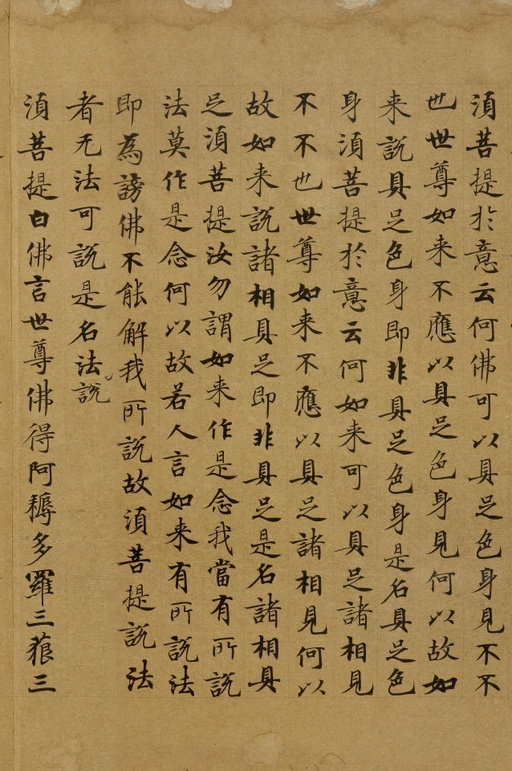 湏菩提扵意云何佛可以具足色身見不不
也世尊如来不應以具足色身見何以故如
来說具足色身即非具足色身是名具足色
身湏菩提扵意云何如来可以具足諸相見
不不也世尊如来不應以具足諸相見何以
故如来說諸相具足即非具足是名諸相具
足湏菩提汝勿謂如来作是念我當有所說
法莫作是念何以故若人言如来有所說法
即為謗佛不能解我所說故湏菩提說法
者无法可說是名法說
湏菩提白佛言世尊佛得阿耨多羅三藐三